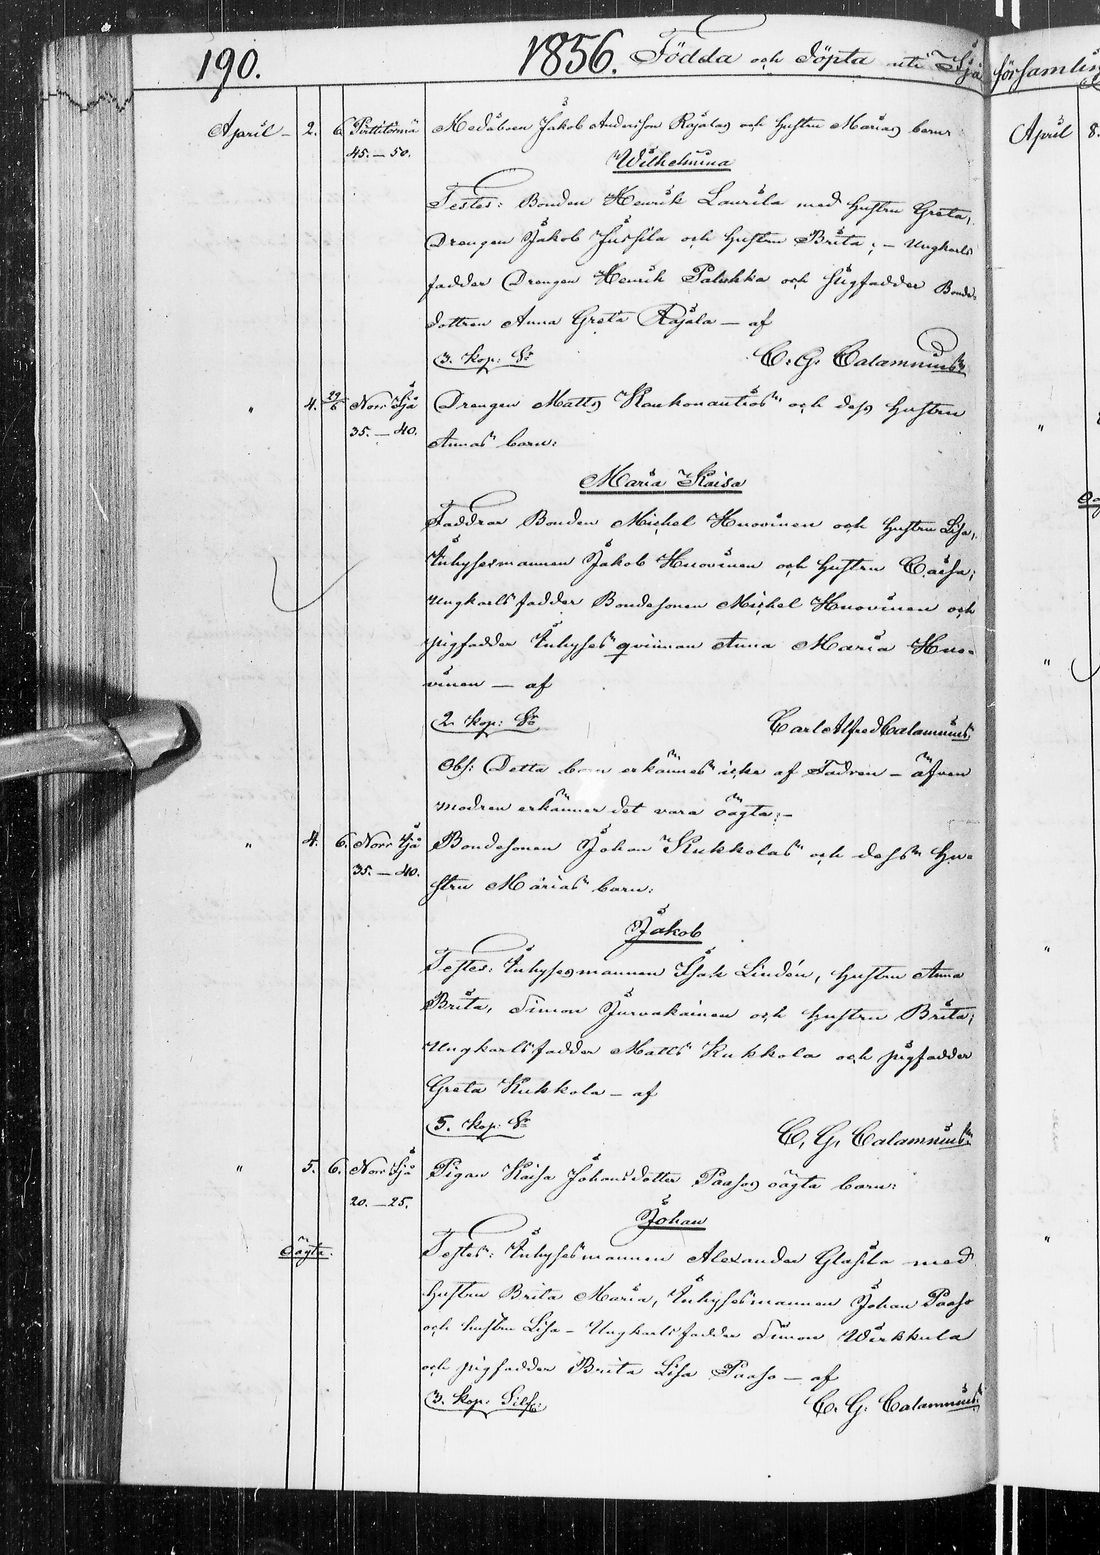 190. 1856. Födda och döpta uti Ijå församlin
April – 2. 6. Pirttitörmä Medåboen Jakob Andersson Rajalas och hustru Marias barn:
45. – 50. Wilhelmina
Testes: Bonden Henrik Laurila med hustru Greta;
Drengen Jakob Jussila och hustru Brita; – Ungkarls
fadder Drengen Henrik Palukka och pigfadder Bonde-
dottren Anna Greta Rajala – af
3. kop: Sr C. G. Calamnius
" 4. 29/6 Norr Ijå Drengen Matts Kaukonantios och dess hustru
35. – 40. Annas barn:
Maria Kaisa
Faddrar Bonden Michel Huovinen och hustru Lisa,
Inhysesmannen Jakob Huovinen och hustru Caisa;
Ungkarls fadder Bondesonen Michel Huovinen och
pigfadder Inhyses qvinnan Anna Maria Huo-
vinen – af
2. kop: Sr Carl Alfred Calamnius
Obs: Detta barn erkännes icke af Fadren – äfven
modren erkänner det vara oägta; –
" 4. 6. Norr Ijå Bondesonen Johan Kukkolas och dess hu-
35. – 40. stru Marias barn:
Jakob
Testes: Inhysesmannen Isak Lindén, hustru Anna
Brita, Simon Jurvakainen och hustru Brita;
Ungkarls fadder Matts Kukkola och pigfadder
Greta Kukkola – af
5. kop: Sr C. G. Calamnius
" 5. 6. Norr Ijå Pigan Kaisa Johansdotter Paasos oägta barn:
20. – 25. Johan
oägta: Testes: Inhysesmannen Alexander Glasila med
hustru Brita Maria, Inhysesmannen Johan Paaso
och hustru Lisa – Ungkarls fadder Simon Wirkkula
och pigfadder Brita Lisa Paaso – af
3. kop: Silf: C. G. Calamnius
April 8.